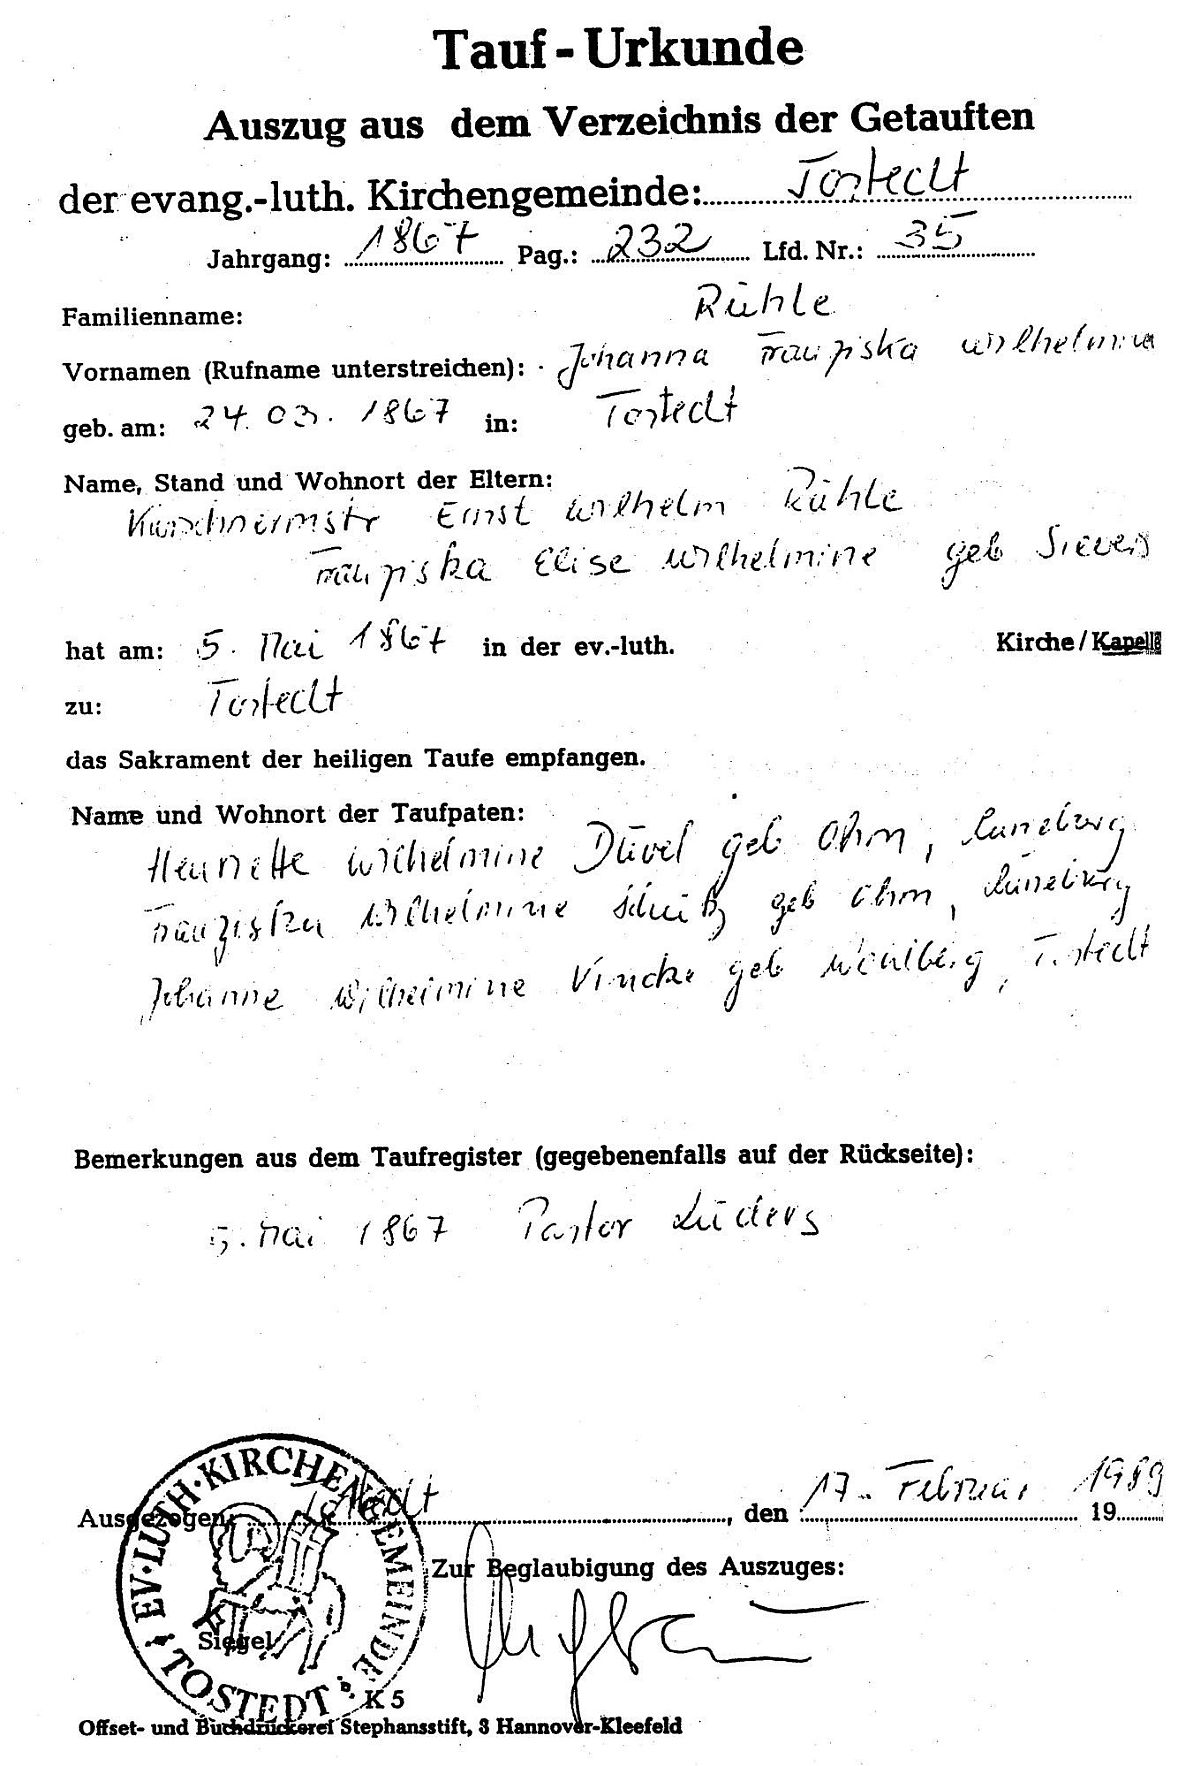 Tauf-Urkunde
Auszug aus dem Verzeichnis der Getauften
der evang.-luth. Kirchengemeinde: Tostedt
Jahrgang: 1867 Pag.: 232 Lfd. Nr.: 35
Familienname: Rühle
Vornamen (Rufname unterstreichen): Johanna Franziska Wilhelmine
geb. am: 24. 03. 1867 in: Tostedt
Name, Stand und Wohnort der Eltern:
Kürschnermstr Ernst Wilhelm Rühle
Franziska Elise Wilhelmine geb Sievers
hat am: 5. Mai 1867 in der ev.-luth. Kirche/Kapelle
zu: Tostedt
das Sakrament der heiligen Taufe empfangen.
Name und Wohnort der Taufpaten:
Henriette Wilhelmine Düvel geb Ohm, Lüneburg
Franziska Wilhelmine geb Ohm, Lüneburg
Johanne Wilhelmine Vincke geb Wohlberg, Tostedt
Bemerkungen aus dem Taufregister (gegebenenfalls auf der Rückseite):
5. Mai 1867 Pastor Lüders
Ausgezogen: Tostedt, den 17. Februar 1989 19
Zur Beglaubigung des Auszuges:
EV.-LUTH. KIRCHENGEMEINDE TOSTEDT
Siegel
K 5
Offset- und Buchdruckerei Stephansstift, 3 Hannover-Kleefeld